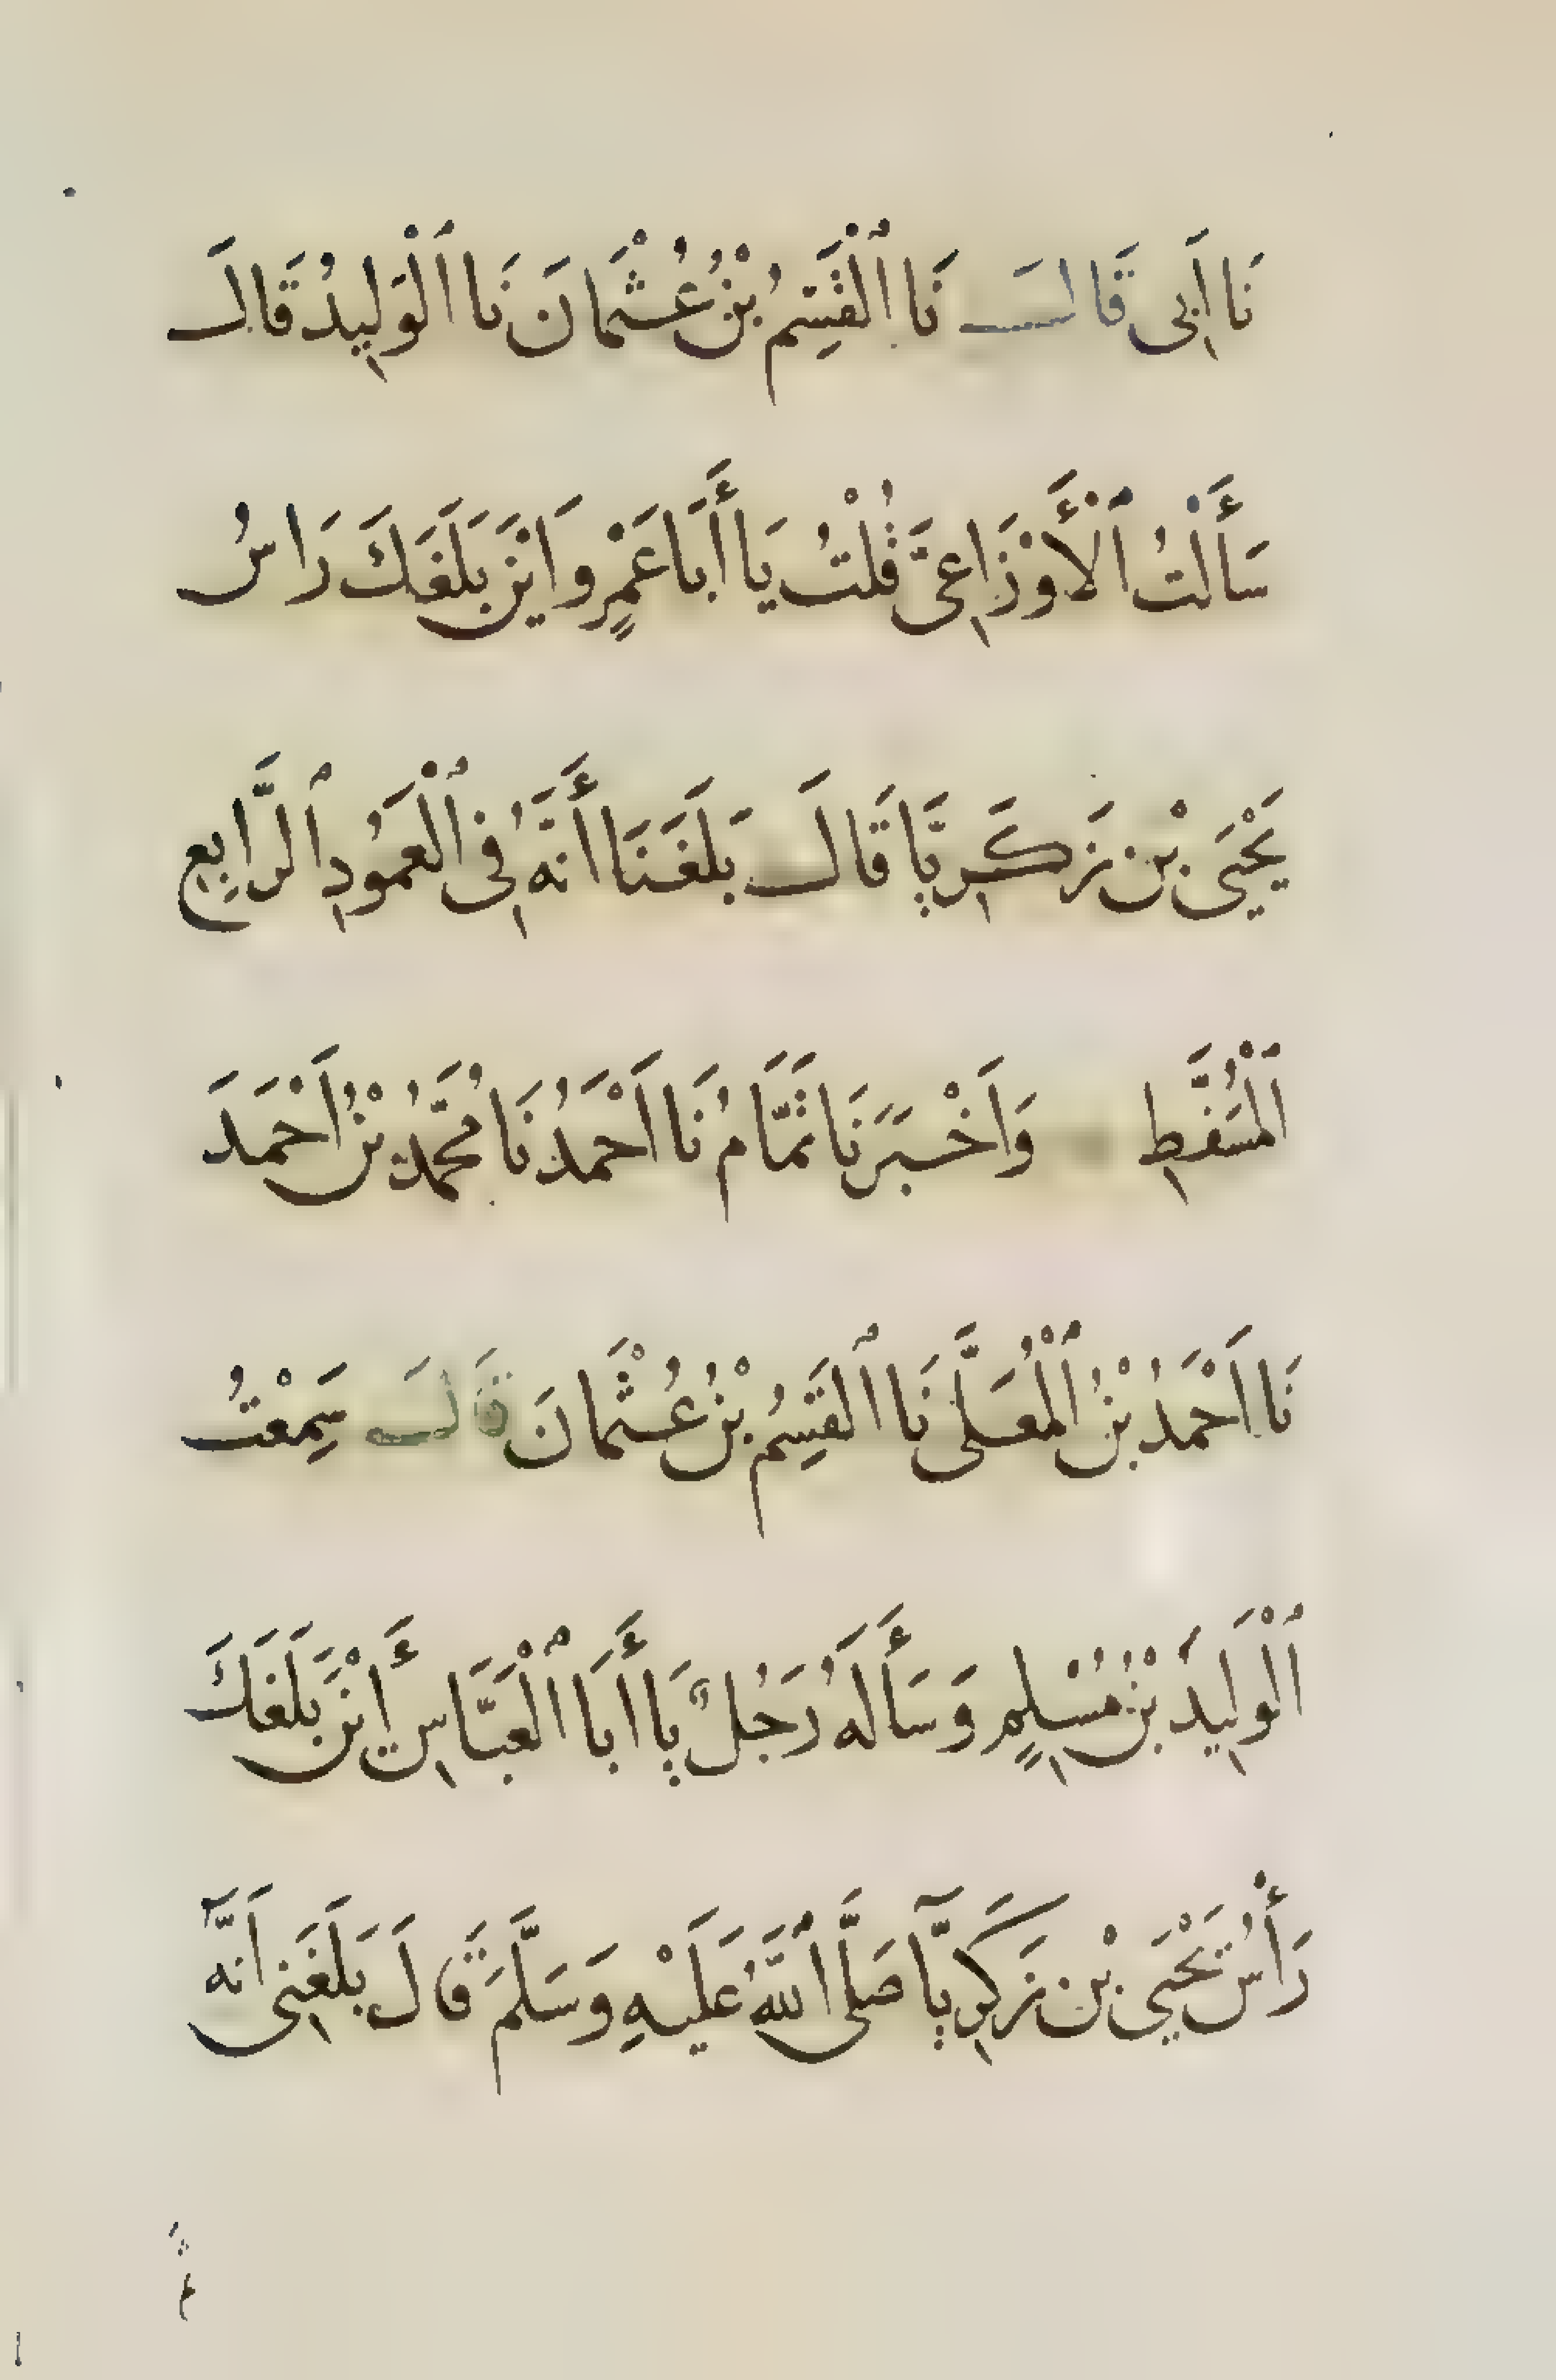 نَا اَبِى قَالَ نَا ٱلْقَسِمُ بْنُ عُثْمَانَ نَا ٱلْوَلِيدُ قَالَ
سَأَلْتُ ٱلْأَوْزَاعِىَّ قُلْتُ يَا أَبَا عَمْرٍو اَيْنَ بَلَغَكَ رَاسُ
يَحْيَى بْنِ زَكَرِيَّا قَالَ بَلَغَنَا أَنَّهُ فِى ٱلْعَمُودِ ٱلرَّابِعِ
ٱلْمُسَفَّطِ وَاَخْبَرَنَا تَمَّامُ نَا اَحْمَدُ نَا مُحَمَّدُ بْنُ اَحْمَدَ
نَا اَحْمَدُ بْنُ ٱلْمُعَلَّى نَا ٱلْقَسِمُ بْنُ عُثْمَانَ قَالَ سَمِعْتُ
ٱلْوَلِيدَ بْنُ مُسْلِمٍ وَسَأَلَهُ رَجُلٌ يَا أَبَا ٱلْعَبَّاسِ أَيْنَ بَلَغَكَ
رَأْسُ يَحْيَى بْنِ زَكَرِيَّآ صَلَّى ٱللَّهُ عَلَيْهِ وَسَلَّمَ قَالَ بَلَغَنِى اَنَّهُ